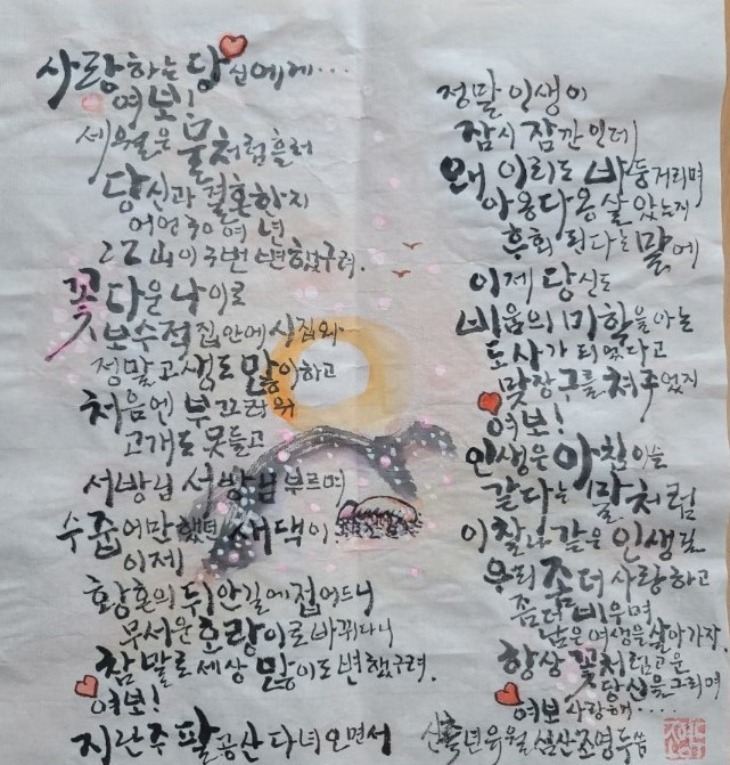 사랑하는 당신에게...
여보!
세월은 물처럼 흘러
당신과 결혼한지
어언 30여 년
그간 山이 3번 변했구려.
꽃다운 나이로
보수적 집안에 시집와
정말 고생도 많이하고
처음엔 부끄러워
고개도 못들고
서방님 서방님 부르며
수줍어만 했던 새댁이
이제
황혼의 뒤안길에 접어드니
무서운 호랑이로 바뀌다니
참말로 세상 많이도 변했구려.
여보!
지난주 팔공산 다녀오면서
정말 인생이
잠시 잠깐 인데
왜 이리도 바둥거리며
아옹다옹 살았는지
후회 된다는 말에
이제 당신도
비움의 미학을 아는
도사가 되었다고
맞장구를 쳐주었지
여보!
인생은 아침이슬
같다는 말처럼
이 찰나 같은 인생길
우리 좀더 사랑하고
좀더 비우며
남은 여생을 살아가자.
항상 꽃처럼 고운
당신을 그리며
여보 사랑해....
신축년 유월 심산 조영두 씀